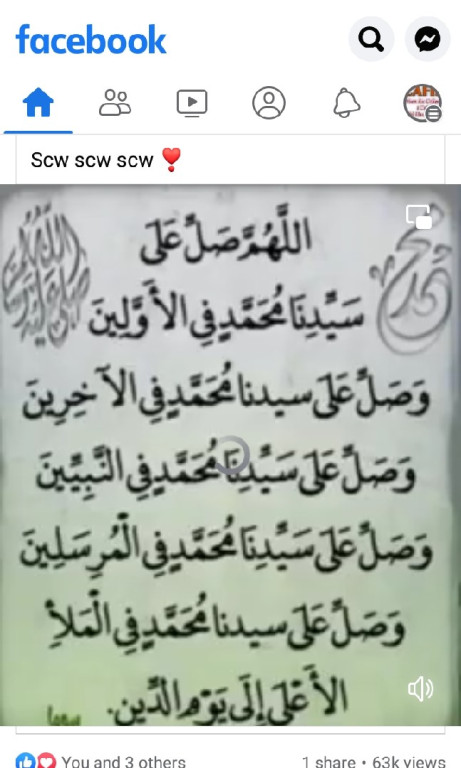 facebook
Scw scw scw ❣
اللَّهُمَّ صَلِّ عَلَى
سَيِّدِنَا مُحَمَّدٍ فِي الأَوَّلِينَ
وَصَلِّ عَلَى سيدنا مُحَمَّدٍ فِي الآخِرِينَ
وَصَلِّ عَلَى سَيِّدِنَا مُحَمَّدٍ فِي النَّبِيِّينَ
وَصَلِّ عَلَى سَيِّدِنَا مُحَمَّدٍ فِي الْمُرسَلِينَ
وَصَلِّ عَلَى سيدنا مُحَمَّدٍ فِي الْمَلأِ
الأَعْلَى إِلَى يَوْمِ الدِّينِ.
You and 3 others
1 share • 63k views